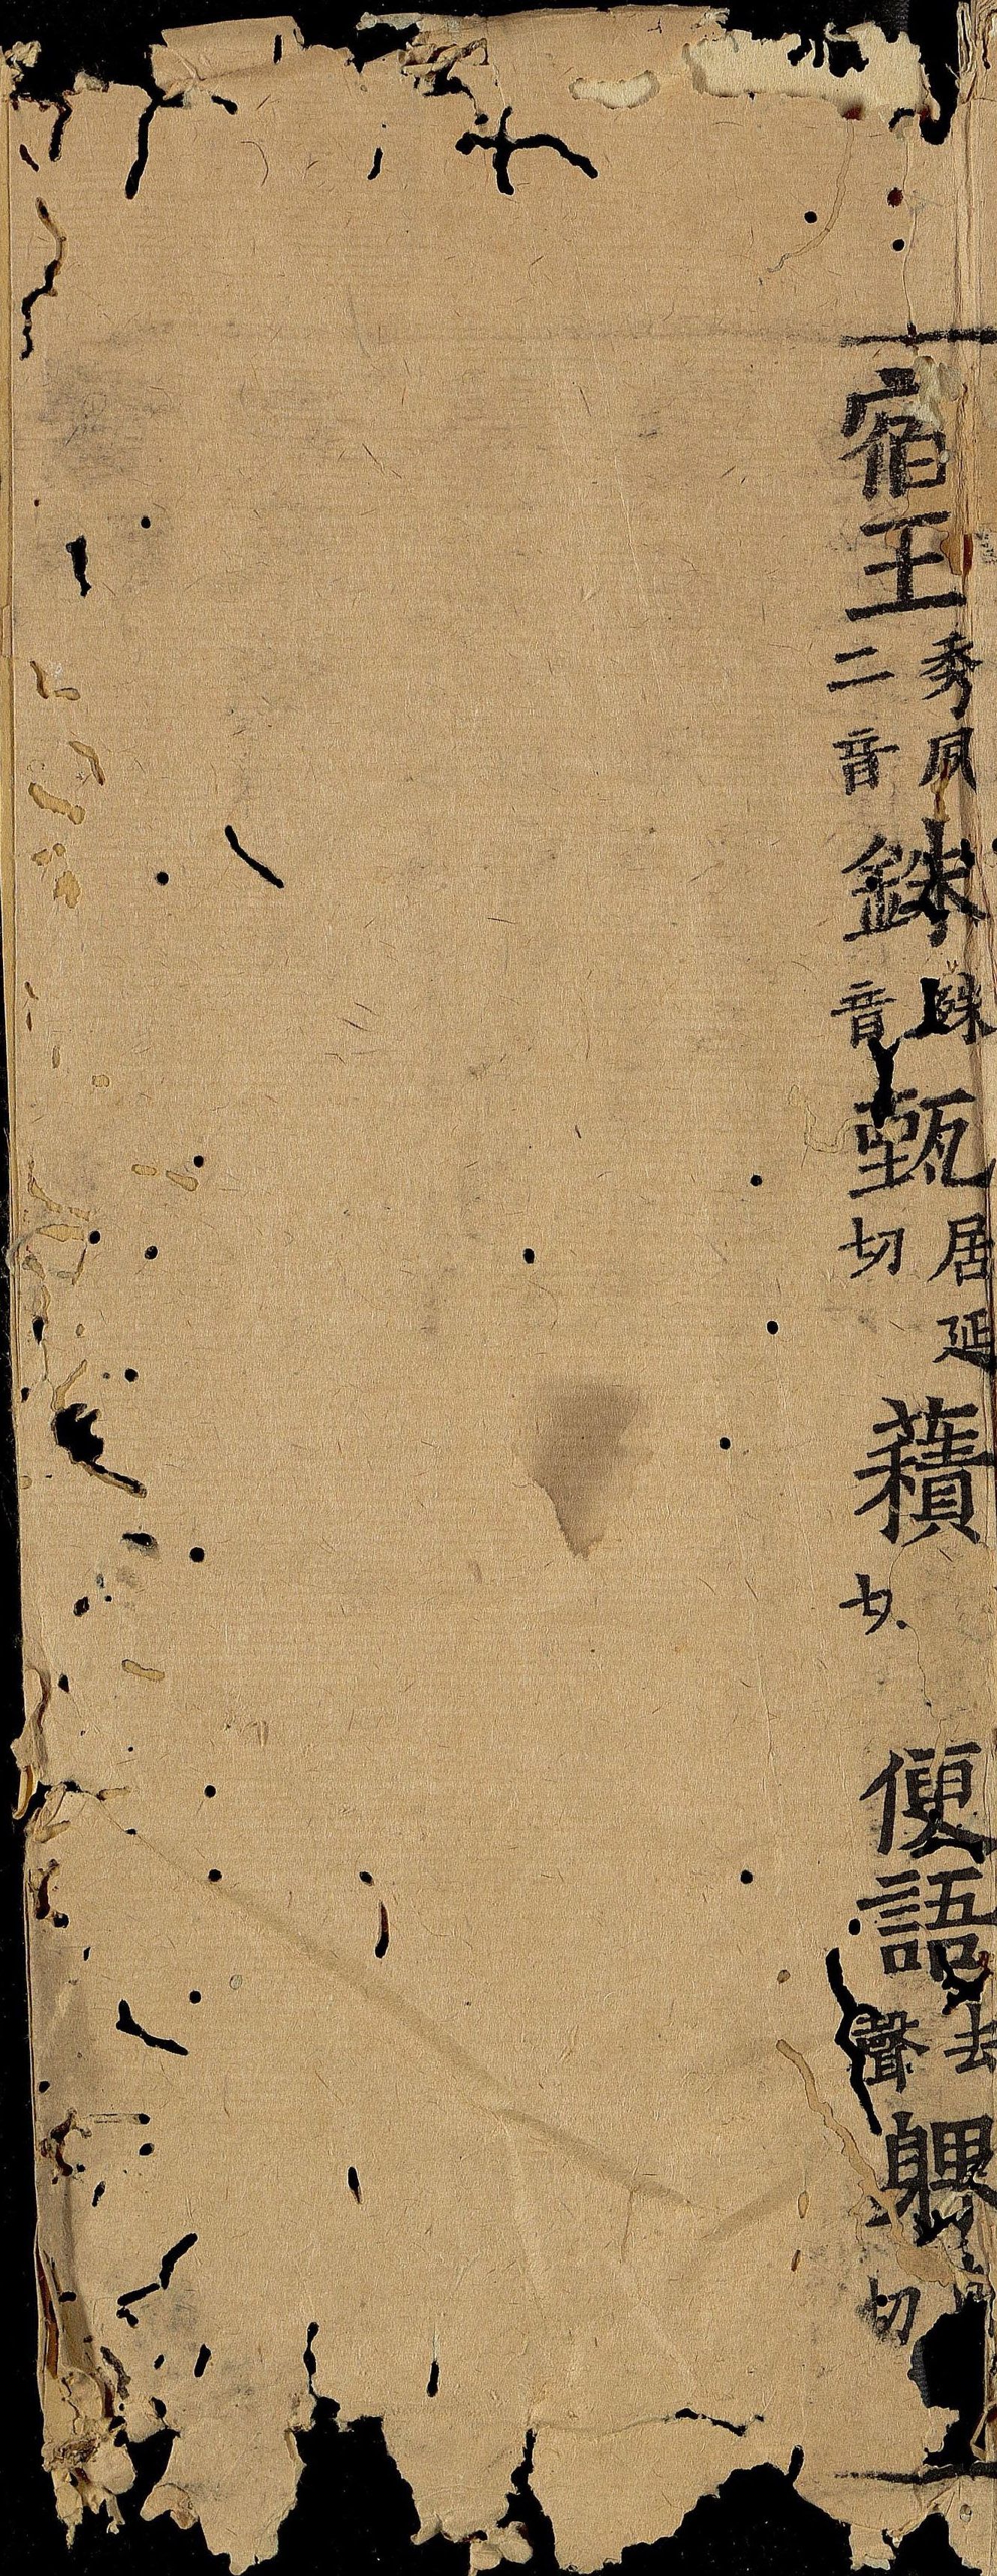 宿王秀夙二音銖殊音甄居延切䕆切便語去聲躶切